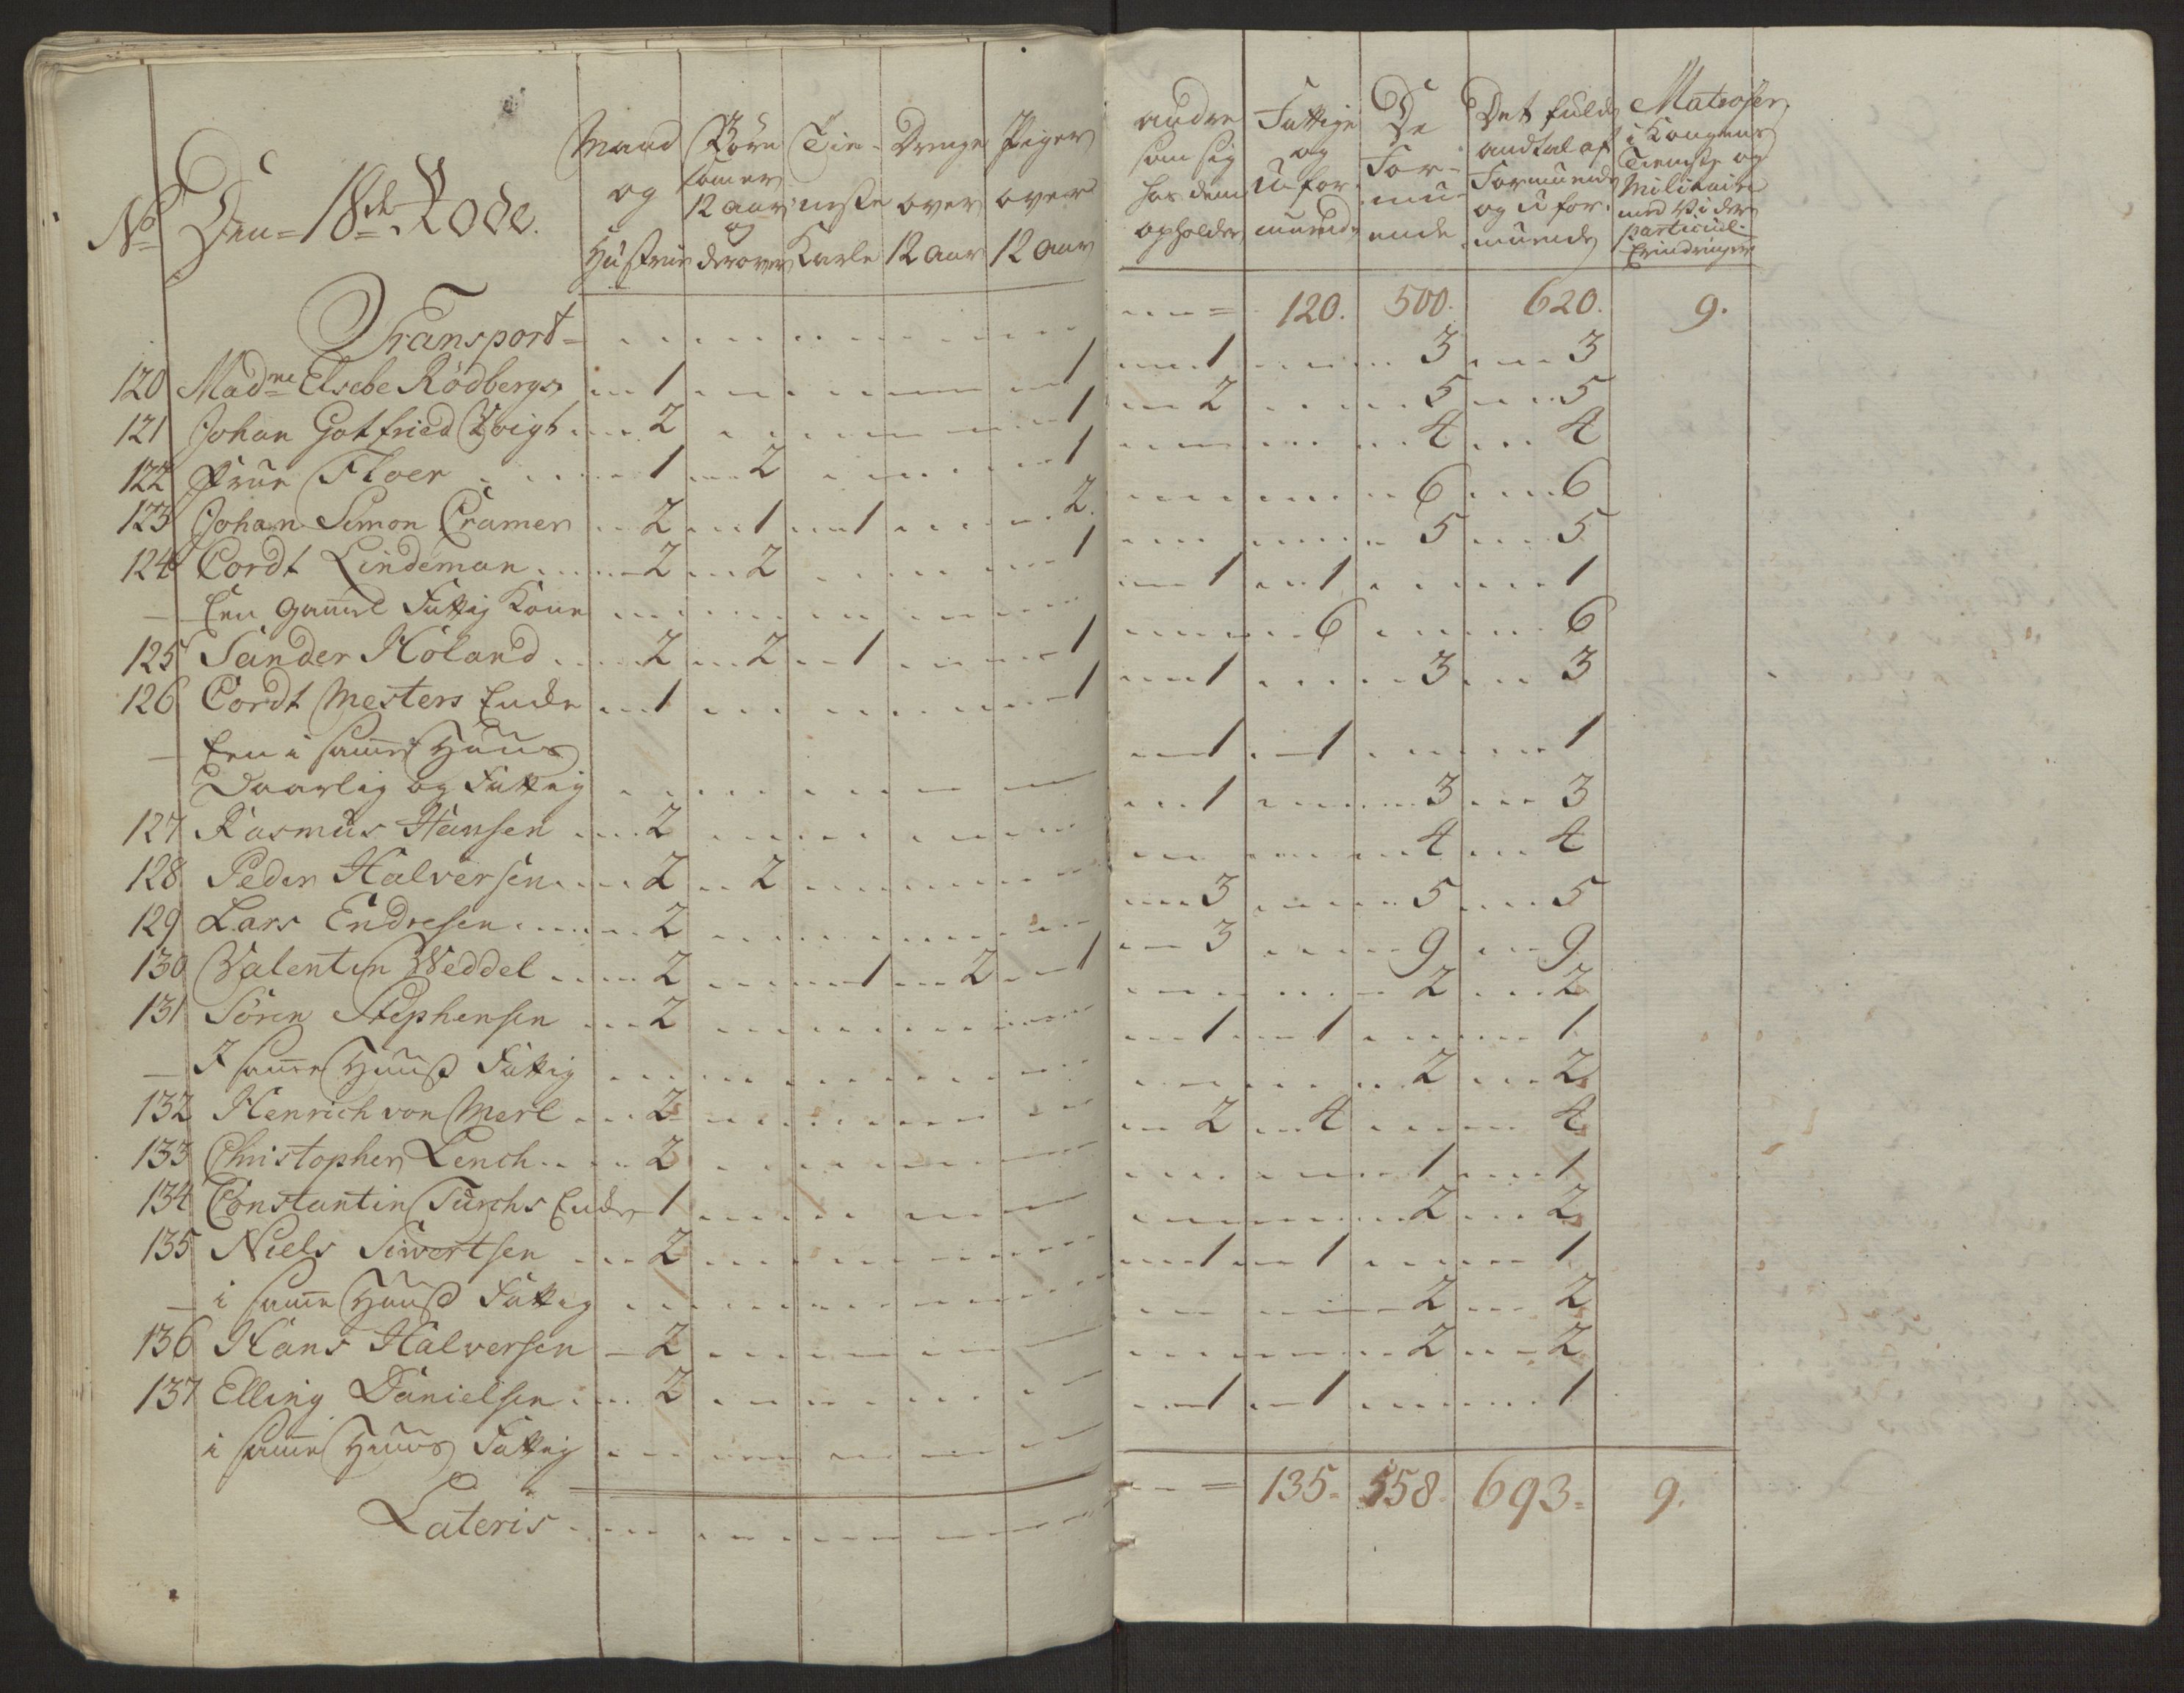 No Den 18de Rode.
Mand og Hustrue
Børn som er 12 aar og derover
Tieneste Karle
Drenge over 12 Aar
Piger over 12 Aar
andre som sig hos dem opholder
Fattige og Uformuende
De Formuende
Det fulde andtal af Formuende og uformuende
Matroser i Kongens Tieneste og Militaire med V: der particul. Erindringer
Transport = 120. 500. 620. 9.
120 Madme Elsebe Rödbergs 1 1 1 3 3
121 Johan Gotfried Voigt 2 1 2 5 5
122 Frue Floer 1 2 1 4 4
123 Johan Simon Cramer 2 1 1 2. 6 6
124 Cordt Lindeman 2 2 1 5 5
— Een gamel Fattig Kone 1 1 1
125 Sander Höland 2 2 1 1 6 6
126 Cordt Mesters Enke 1 1 1 3 3
— Een i same Huus
Daarlig og Fattig 1 1 1
127 Rasmus Hansen 2 1 3 3
128 Peder Halversen 2 2 4 4
129 Lars Endresen 2 3 5 5
130 Valentin Weddel 2 1 2 1 3 9 9
131 Sören Stephensen 2 2 2
— I same Huus Fattig 1 1 1
132 Henrich von Merl 2 2 2
133 Christopher Lench 2 2 4 4
134 Constantin Türchs Enke 1 1 1
135 Niels Siwertsen 2 2 2
— i same Huus Fattig 1 1 1
136 Hans Halversen 2 2 2
137 Elling Danielsen 2 2 2
i same Huus Fattig 1 1 1
Lateris = 135 = 558 693 = 9.